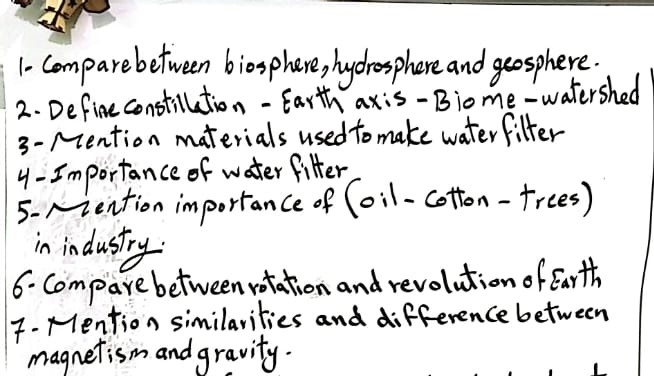 1- Compare between biosphere, hydrosphere and geosphere.
2- Define Constillation - Earth axis - Biome - watershed
3- Mention materials used to make water filter
4- Importance of water filter
5- Mention importance of (oil - Cotton - trees)
in industry.
6- Compare between rotation and revolution of Earth
7- Mention similarities and difference between
magnetism and gravity.